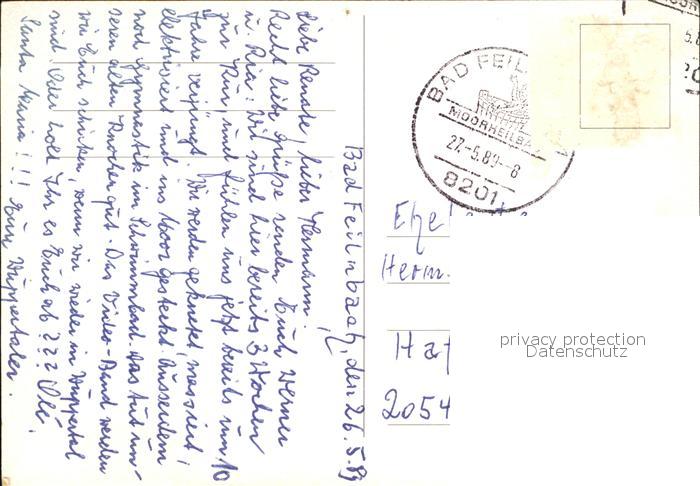 Bad Feilnbach, den 26.5.89
Liebe Renate, lieber Hermann.
Recht liebe Grüße senden Euch Werner
u. Ria. Wir sind hier bereits 3 Wochen
zur Kur, und fühlen uns jetzt bereits um 10
Jahre verjüngt. Wir werden geknetet, massiert,
elektrisiert und ins Moor gesteckt. Ausserdem
noch Gymnastik im Schwimmbad. Das tut un-
seren alten Knochen gut. Das Video-Band werden
wir Euch schicken, wenn wir wieder in Wuppertal
sind. Oder holt Ihr es Euch ab ??? Olé!
Santa Maria!!! Eure Wuppertaler.
BAD FEIL
MOORHEILBA
27.-5.89-8
8201
Ehe
Herm.
Ha
2054
privacy protection
Datenschutz